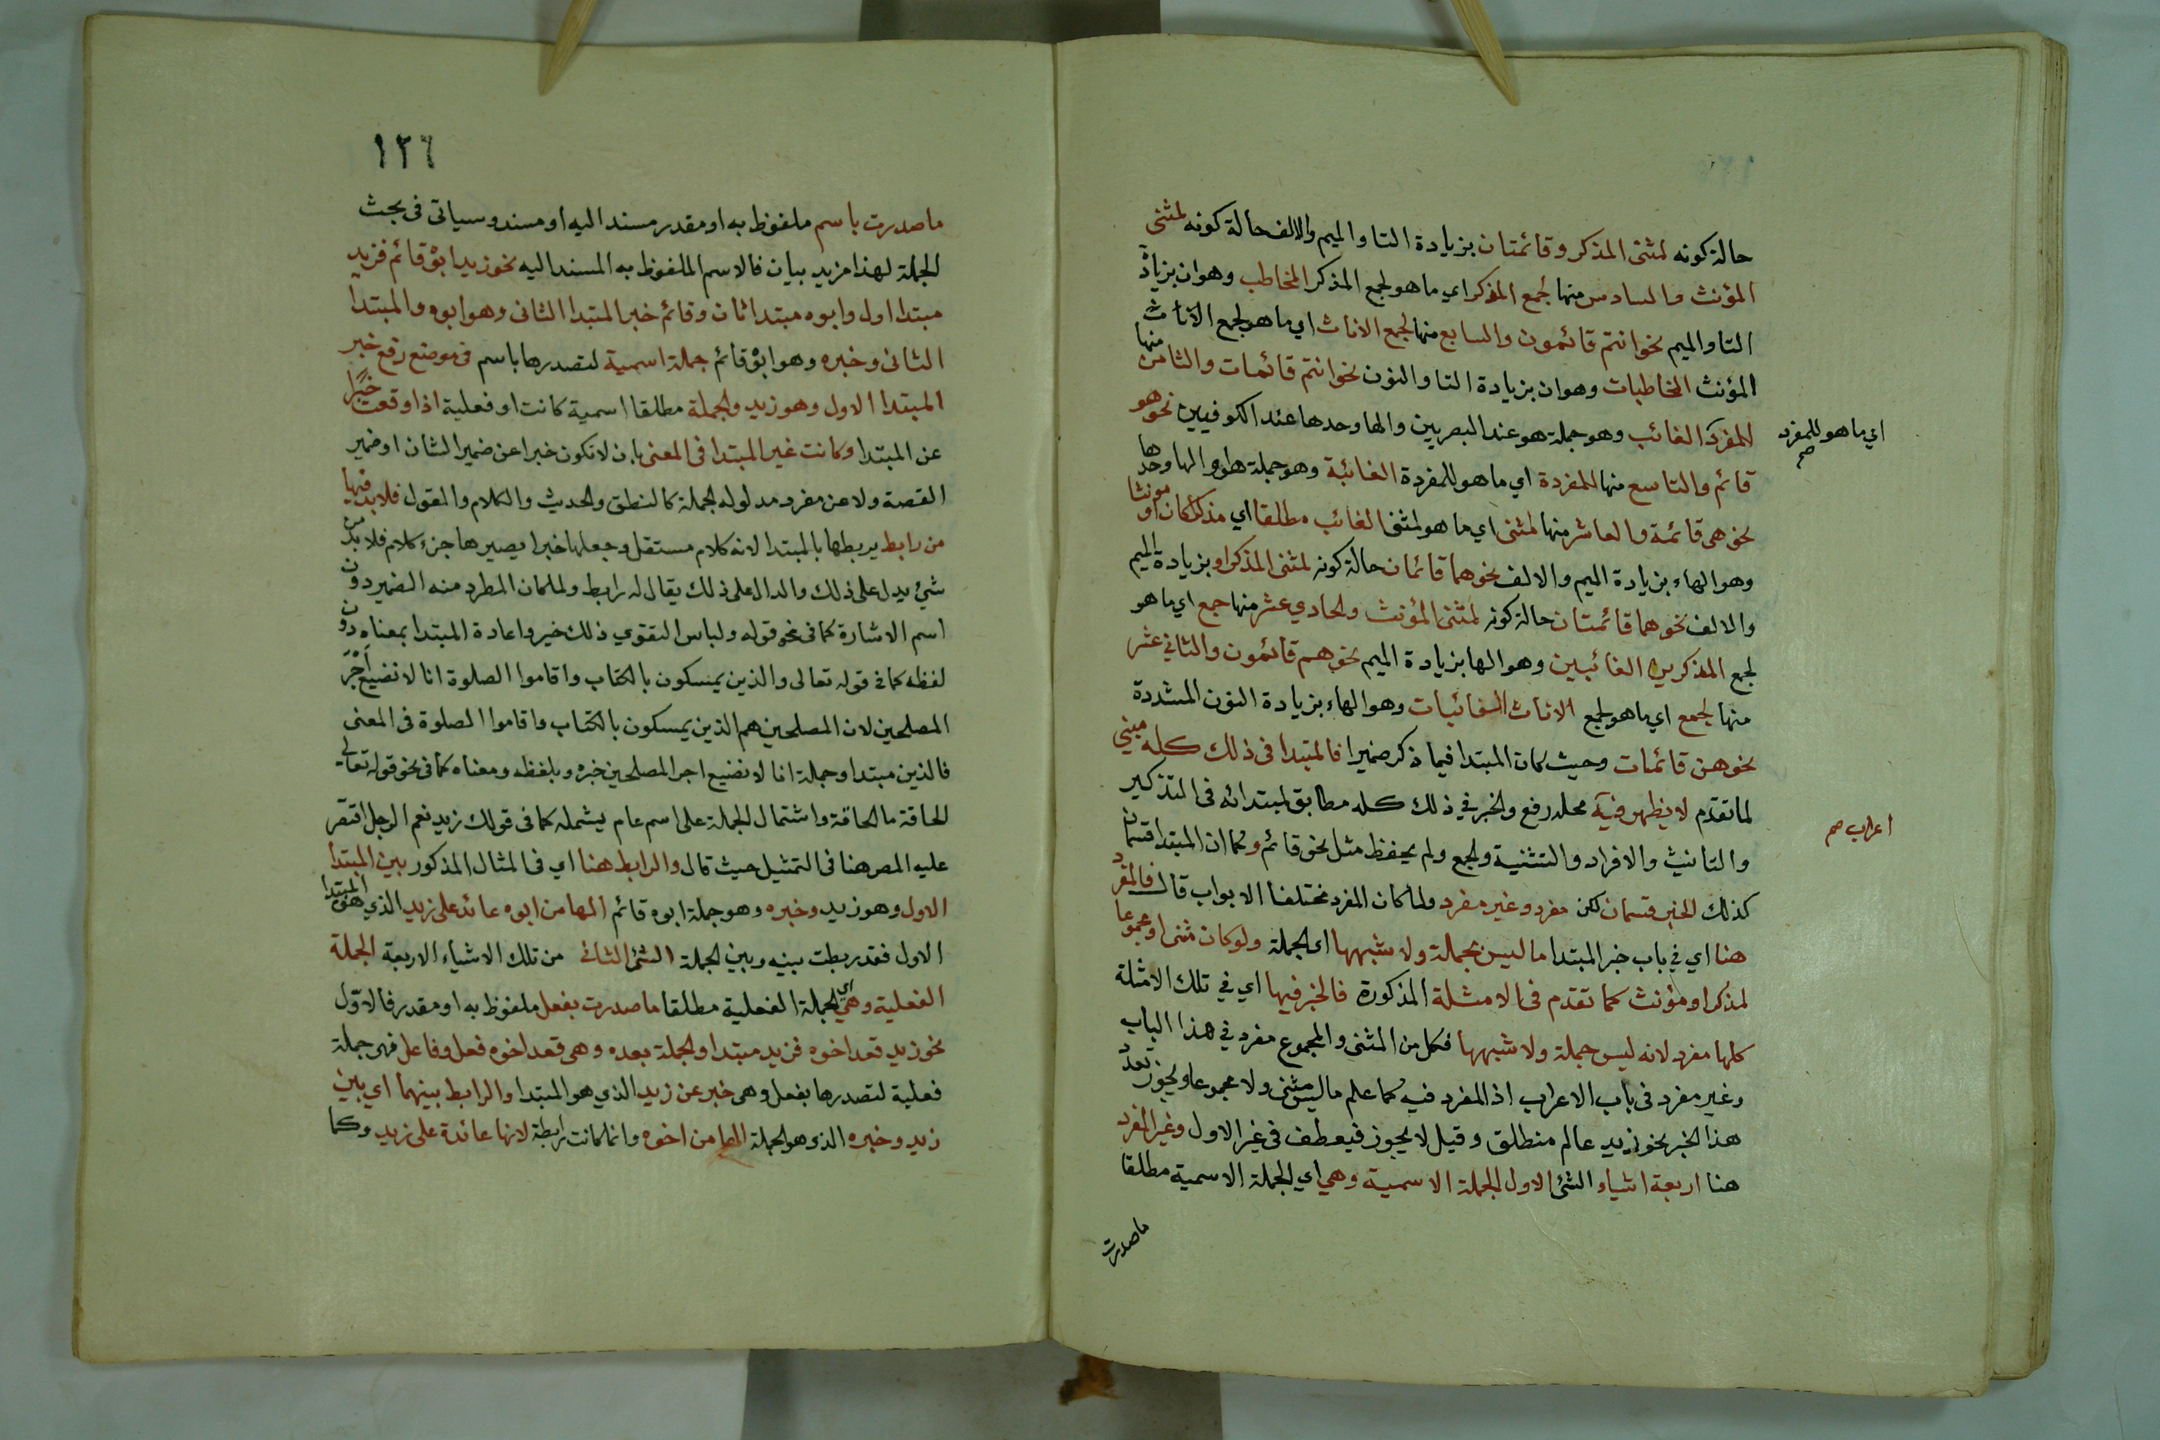 حالة كونه لمثنى المذكر وقائمتان بزيادة التا والميم والالف حالة كونه لمثنى
المؤنث والسادس منها لجمع المذكر اي ما هو لجمع المذكر المخاطب وهو ان بزيادة
التا والميم نحو انتم قائمون والسابع منها لجمع الاناث اي ما هو لجمع الاناث
المؤنث المخاطبات وهو ان بزيادة التا والنون نحو انتم قائمات والثامن منها
للمفرد الغائب وهو جملة هو عند البصريين والها وحدها عند الكوفيين نحو هو
اي ما هو للمفرد صح
قائم والتاسع منها للمفردة اي ما هو للمفردة الغائبة وهو جملة هو والها وحدها
نحو هي قائمة والعاشر منها لمثنى اي ما هو لمثنى الغائب مطلقا اي مذكرا كان او مونثا
وهو الهاء بزيادة الميم والالف نحو هما قائمان حالة كونه لمثنى المذكر او بزيادة الميم
والالف نحو هما قائمتان حالة كونه لمثنى المؤنث والحادي عشر منها جمع اي ما هو
لجمع المذكرين الغائبين وهو الها بزيادة الميم نحو هم قائمون والثاني عشر
منها لجمع اي ما هو لجمع الاناث الغائبات وهو الهاء بزيادة النون المشددة
نحو هن قائمات وحيث كان المبتدا فيما ذكر ضميرا فالمبتدا في ذلك كله مبني
لما تقدم لا يظهر فيه محله رفع والخبر في ذلك كله مطابق لمبتدائه في التذكير
اعراب صح
والتانيث والافراد والتثنية والجمع ولم يحفظ مثل نحو قائم وكما ان المبتدا قسمان
كذلك الخبر قسمان لكن مفرد وغير مفرد ولما كان المفرد مختلفا الابواب قال فالمفرد
هنا اي في باب خبر المبتدا ما ليس بجملة ولا شبهها اي الجملة ولو كان مثنى او مجموعا
لمذكر او مؤنث كما تقدم في الامثلة المذكورة فالخبر فيها اي في تلك الامثلة
كلها مفرد لانه ليس جملة ولا شبهها فكل من المثنى والمجموع مفرد في هذا الباب
وغير مفرد في باب الاعراب اذ المفرد فيه كما علم ما ليس مثنى ولا مجموعا ويجوز تعدد
هذا الخبر نحو زيد عالم منطلق وقيل لا يجوز فيعطف في غير الاول وغير المفرد
هنا اربعة اشياء الشئ الاول الجملة الاسمية وهي اي الجملة الاسمية مطلقا
ما صدرت
١٢٦
ما صدرت باسم ملفوظ به او مقدر مسند اليه او مسند وسياتي في بحث
الجملة لهذا مزيد بيان فالاسم الملفوظ به المسند اليه نحو زيد ابوه قائم فزيد
مبتدا اول وابوه مبتدا ثان وقائم خبر المبتدا الثاني وهو ابوه والمبتدا
الثاني وخبره وهو ابوه قائم جملة اسمية لتصدرها باسم في موضع رفع خبر
المبتدا الاول وهو زيد والجملة مطلقا اسمية كانت او فعلية اذا وقعت خبرًا
عن المبتدا وكانت غير المبتدا في المعنى بان لا تكون خبرا عن ضمير الشان او ضمير
القصة ولا عن مفرد مدلوله الجملة كالنطق والحديث والكلام والمقول فلابد فيها
من رابط يربطها بالمبتدا لانه كلام مستقل وجعلها خبرا يصيرها جزء كلام فلا بد من
شئ يدل على ذلك والدال على ذلك يقال له رابط ولما كان المطرد منه الضمير دون
اسم الاشارة كما في نحو قوله ولباس التقوي ذلك خير واعادة المبتدا بمعناه دون
لفظه كما في قوله تعالى والذين يمسكون بالكتاب واقاموا الصلوة انا لا نضيع اَجْرَ
المصلحين لان المصلحين هم الذين يمسكون بالكتاب واقاموا الصلوة في المعنى
فالذين مبتدا وجملة انا لا نضيع اجر المصلحين خبره وبلفظه ومعناه كما في نحو قوله تعالى
الحاقة ما الحاقة واشتمال الجملة على اسم عام يشمله كما في قولك زيد نعم الرجل اقتصر
عليه المصر هنا في التمثيل حيث قال والرابط هنا اي في المثال المذكور بين المبتدا
الاول وهو زيد وخبره وهو جملة ابوه قائم الها من ابوه عائد على زيد الذي هو المبتدا
الاول فقد ربطت بينه وبين الجملة الشئ الثاني من تلك الاشياء الاربعة الجملة
الفعلية وهي اي الجملة الفعلية مطلقا ما صدرت بفعل ملفوظ به او مقدر فالاوّل
نحو زيد قعد اخوه فزيد مبتدا والجملة بعده وهي قعد اخوه فعل وفاعل فهي جملة
فعلية لتصدرها بفعل وهي خبر عن زيد الذي هو المبتدا والرابط بينهما اي بين
زيد وخبره الذي هو الجملة الها من اخوه وانما كانت رابطة لانها عائدة على زيد وكما